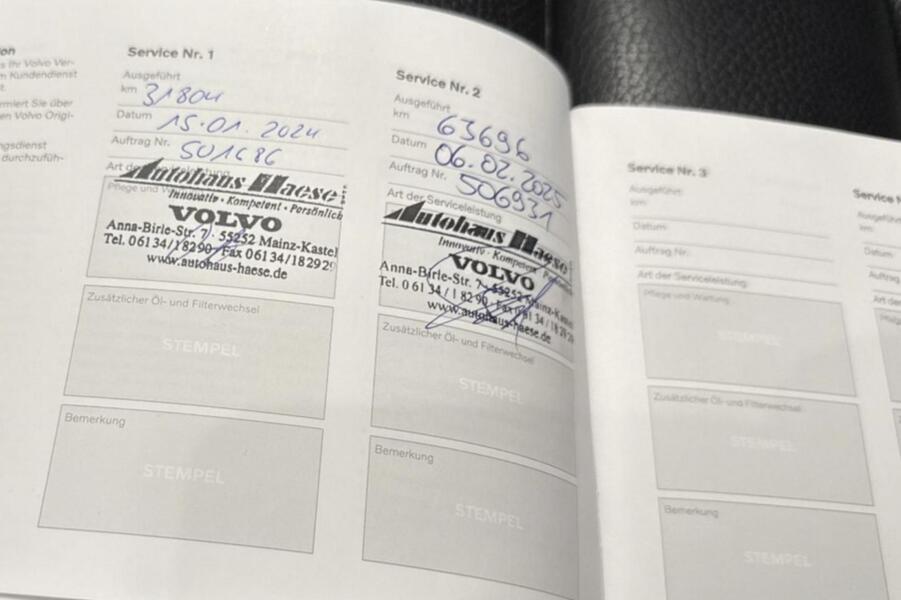 on
s Ihr Volvo Ver-
n Kundendienst
t.
rmiert Sie über
en Volvo Origi-
ngsdienst
durchzufüh-
Service Nr. 1
Ausgeführt
km 31804
Datum 15.01.2024
Auftrag Nr. 501686
Art der Serviceleistung
Pflege und Wartung
Autohaus Haese
Innovativ · Kompetent · Persönlich
VOLVO
Anna-Birle-Str. 7 · 55252 Mainz-Kastel
Tel. 0 61 34 / 1 82 90 Fax 0 61 34 / 18 29 29
www.autohaus-haese.de
Zusätzlicher Öl- und Filterwechsel
STEMPEL
Bemerkung
STEMPEL
Service Nr. 2
Ausgeführt
km 63696
Datum 06.02.2025
Auftrag Nr. 506931
Art der Serviceleistung
Autohaus Haese
Innovativ · Kompetent · Persönlich
VOLVO
Anna-Birle-Str. 7 · 55252 Mainz-Kastel
Tel. 0 61 34 / 1 82 90 Fax 0 61 34 / 18 29 29
www.autohaus-haese.de
Zusätzlicher Öl- und Filterwechsel
STEMPEL
Bemerkung
STEMPEL
Service Nr. 3
Ausgeführt
km
Datum
Auftrag Nr.
Art der Serviceleistung
Pflege und Wartung
STEMPEL
Zusätzlicher Öl- und Filterwechsel
STEMPEL
Bemerkung
STEMPEL
Service N
Ausgeführt
km
Datum
Auftrag
Art der